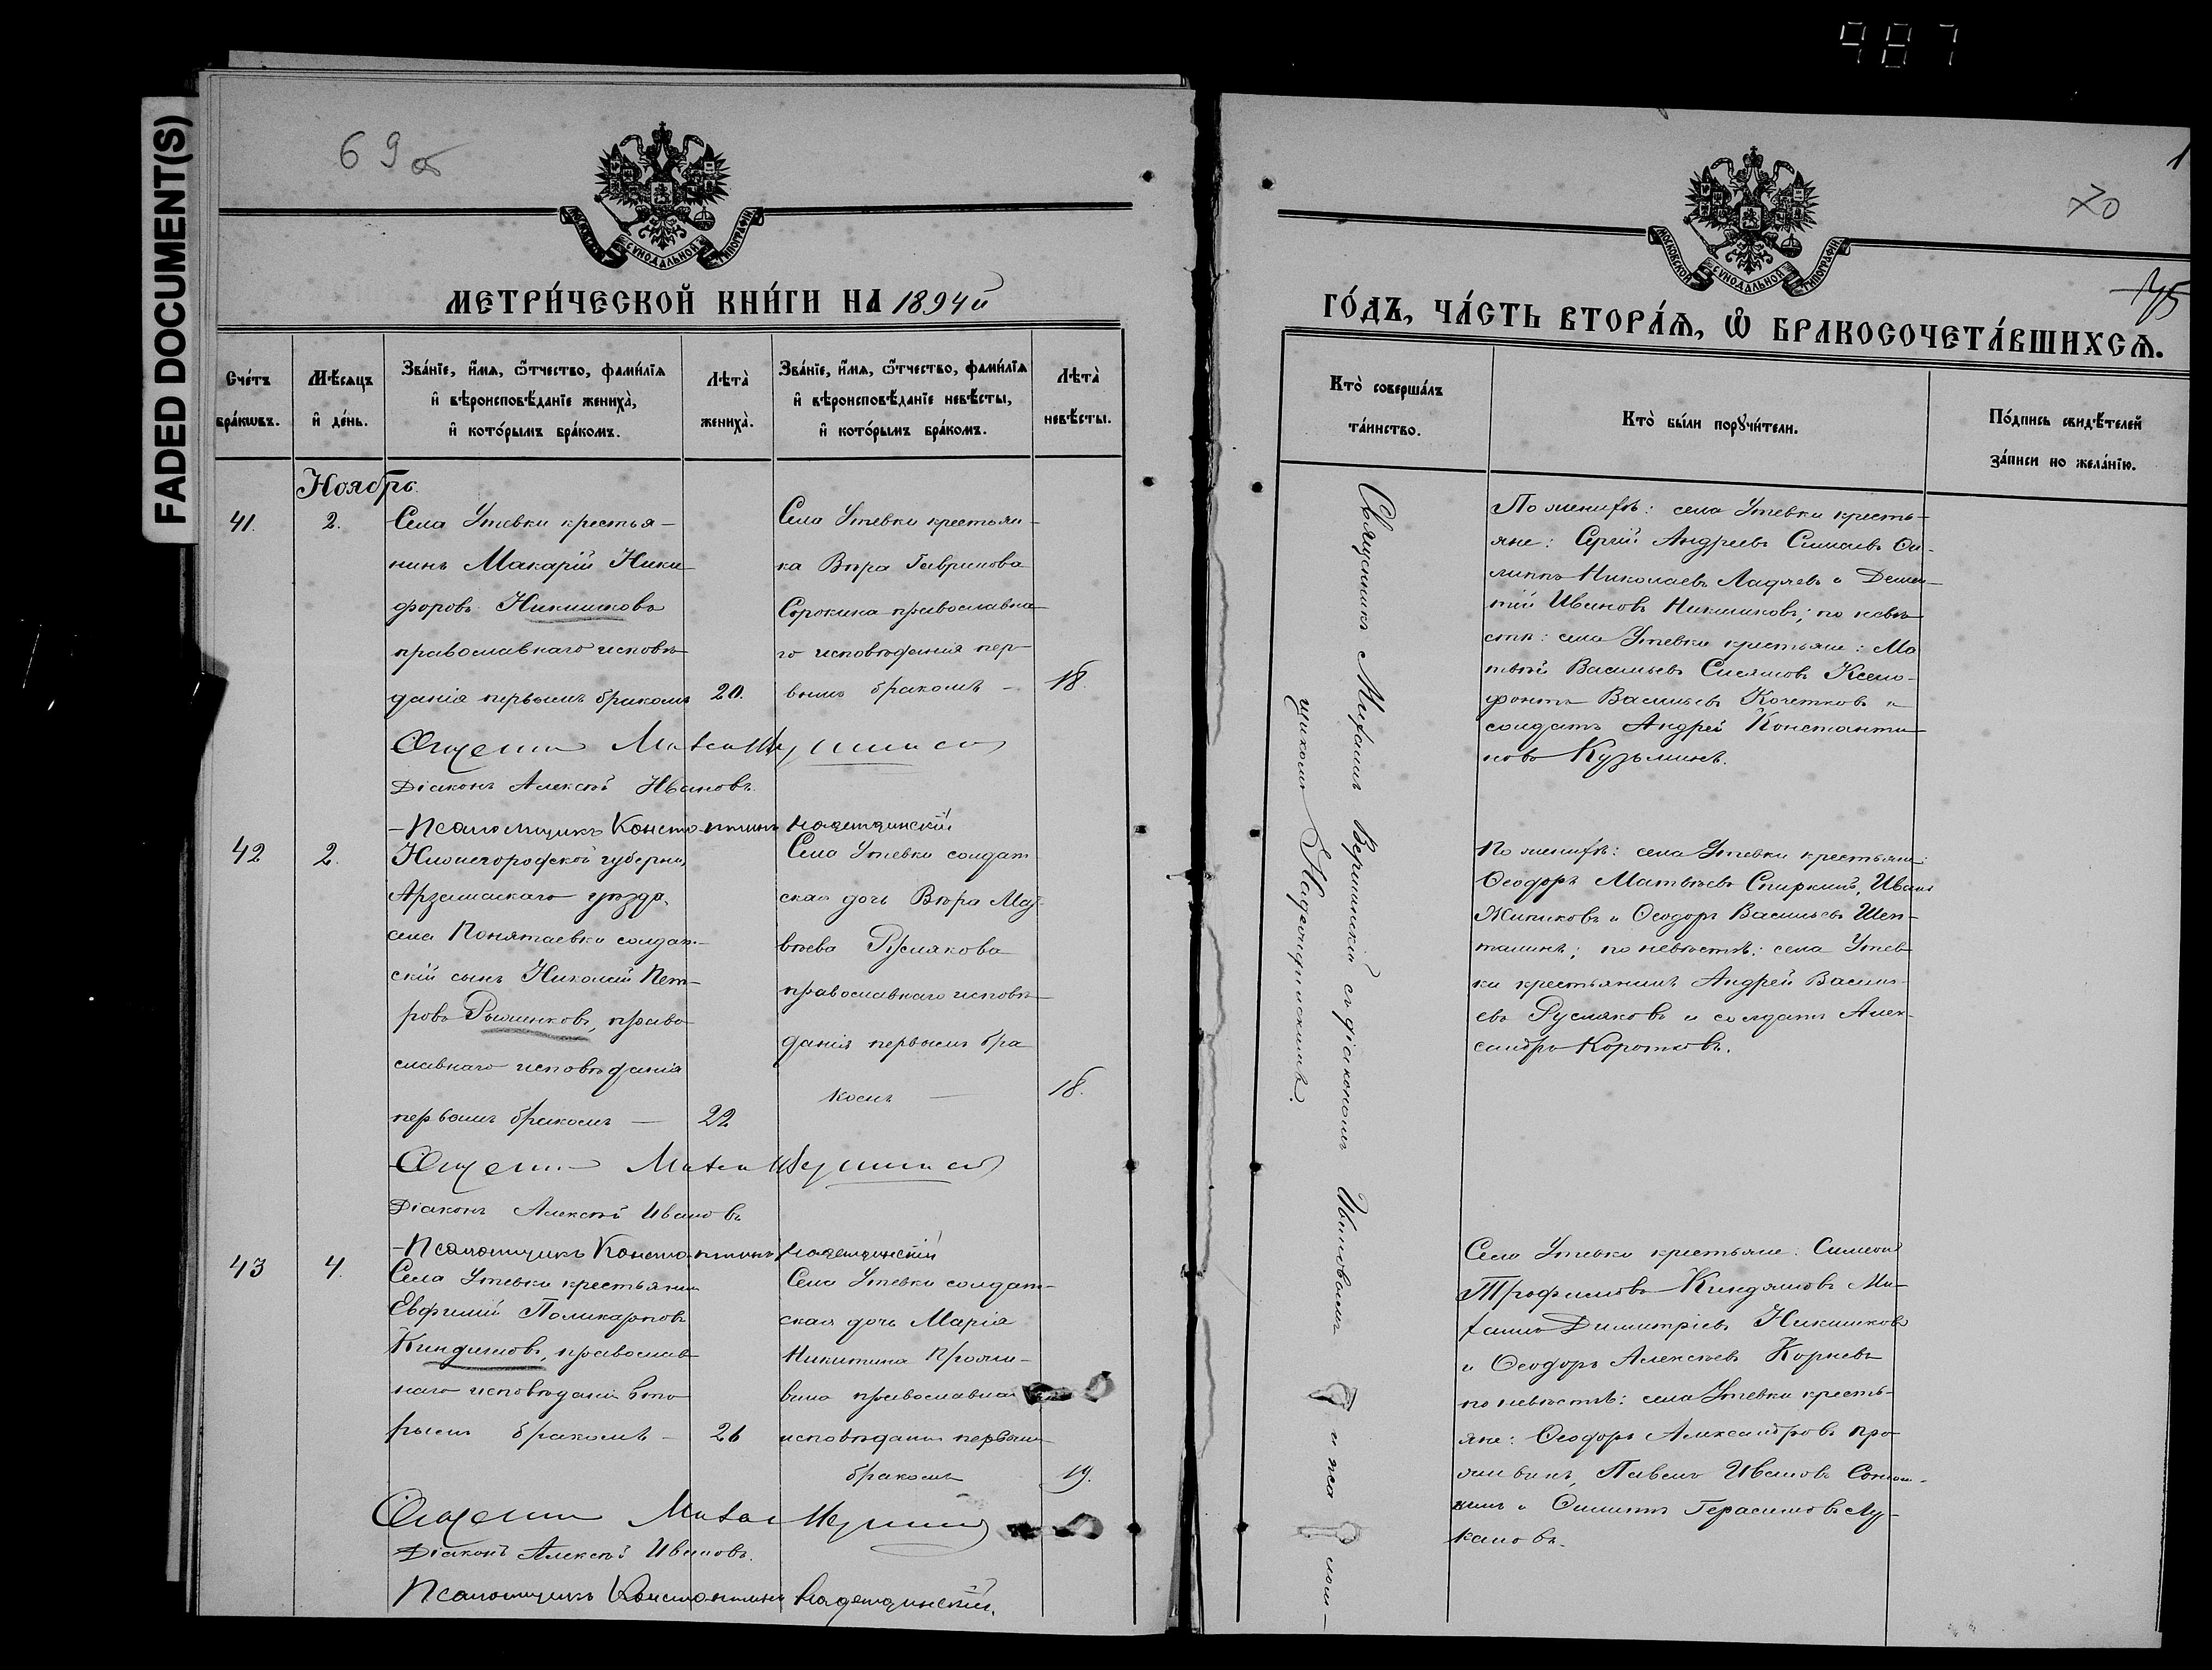 987
FADED DOCUMENT(S)
69 об
МОСКОВСКОЙ СѴНОДАЛЬНОЙ ТИПОГРАФІИ
МЕТРИ́ЧЕСКОЙ КНИ́ГИ НА 1894й
Сче́тъ бра́кѡвъ.
Мѣ́сяцъ и҆ де́нь.
Зва́нїе, и҆́мѧ, ѻ҆́тчество, фами́лїѧ
и҆ вѣроисповѣ́данїе жениха̀,
и҆ кото́рымъ бра́комъ.
Лѣта̀ жениха̀.
Зва́нїе, и҆́мѧ, ѻ҆́тчество, фами́лїѧ
и҆ вѣроисповѣ́данїе невѣ́сты,
и҆ кото́рымъ бра́комъ.
Лѣта̀ невѣ́сты.
Ноябрь.
41.
2.
Села Утевки крестья-
нинъ Макарій Ники
форовъ Никишковъ
православнаго исповѣ
данія первымъ бракомъ
20.
Села Утевки крестьян-
ка Вѣра Гаврилова
Сорокина православна
го исповѣданія пер-
вымъ бракомъ -
18.
Священникъ
Діаконъ Алексѣй Ивановъ.
-Псаломщикъ Константинъ Надеждинскій
42
2.
Нижегородской губерніи,
Арзамаскаго уѣзда,
села Понятаевки солдат-
скій сынъ Николай Пет-
ровъ, право
славнаго исповѣданія
первымъ бракомъ —
22
Села Утевки солдат
ская дочь Вѣра Мат
вѣева Русякова
православнаго исповѣ-
данія первымъ бра
комъ —
18.
Священникъ
Діаконъ Алексѣй Ивановъ
-Псаломщикъ Константинъ Надеждинскій
43
4.
Села Утевки крестьянин
Евфимій Поликарповъ
Киндяшовъ, православ
наго исповѣданія вто
рымъ бракомъ -
26
Села Утевки солдат-
ская дочь Марія
Никитина Прожи-
вина православнаго
исповѣданія первым
бракомъ
19.
Священникъ
Діаконъ Алексѣй Ивановъ.
Псаломщикъ Константинъ Надеждинскій.
1
70
145
МОСКОВСКОЙ СѴНОДАЛЬНОЙ ТИПОГРАФІИ
ГО́ДЪ, ЧА́СТЬ ВТОРА́Ѧ, Ѽ БРАКОСОЧЕТА́ВШИХСѦ.
Кто̀ соверша́лъ та́инство.
Кто̀ бы́ли порꙋчи́тели.
По́дпись свидѣ́телей за́писи по жела́нїю.
Священникъ Михаилъ Вершинскій съ діакономъ Ивановымъ и псалом-
щикомъ Надеждинскимъ.
По женихѣ: села Утевки кресть-
яне: Сергій Андреевъ Си-
липпъ Николаевъ Ладяевъ и Демен-
тій Ивановъ Никишковъ; по невѣ
стѣ: села Утевки крестьяне: Ма
твѣй Васильевъ Ксено-
фонтъ Васильевъ Кочетковъ и
солдатъ Андрей Константи
новъ Кузьминъ.
По женихѣ: села Утевки крестьяне:
Ѳеодоръ Матвѣевъ Спиркинъ, Иванъ
Жиликовъ и Ѳеодоръ Васильевъ Шеп-
талинъ; по невѣстѣ: села Утев
ки крестьянинъ Андрей Василь-
евъ Русяковъ и солдатъ Алек-
сандръ Коротковъ.
Села Утевки крестьяне: Симеонъ
Трофимовъ Киндяшовъ Ми-
хаилъ Димитріевъ Никишковъ
и Ѳеодоръ Алексѣевъ Корневъ
по невѣстѣ: села Утевки кресть-
яне: Ѳеодоръ Александровъ Про-
живинъ, Павелъ Ивановъ
и Филиппъ Герасимовъ Лу-
кановъ.